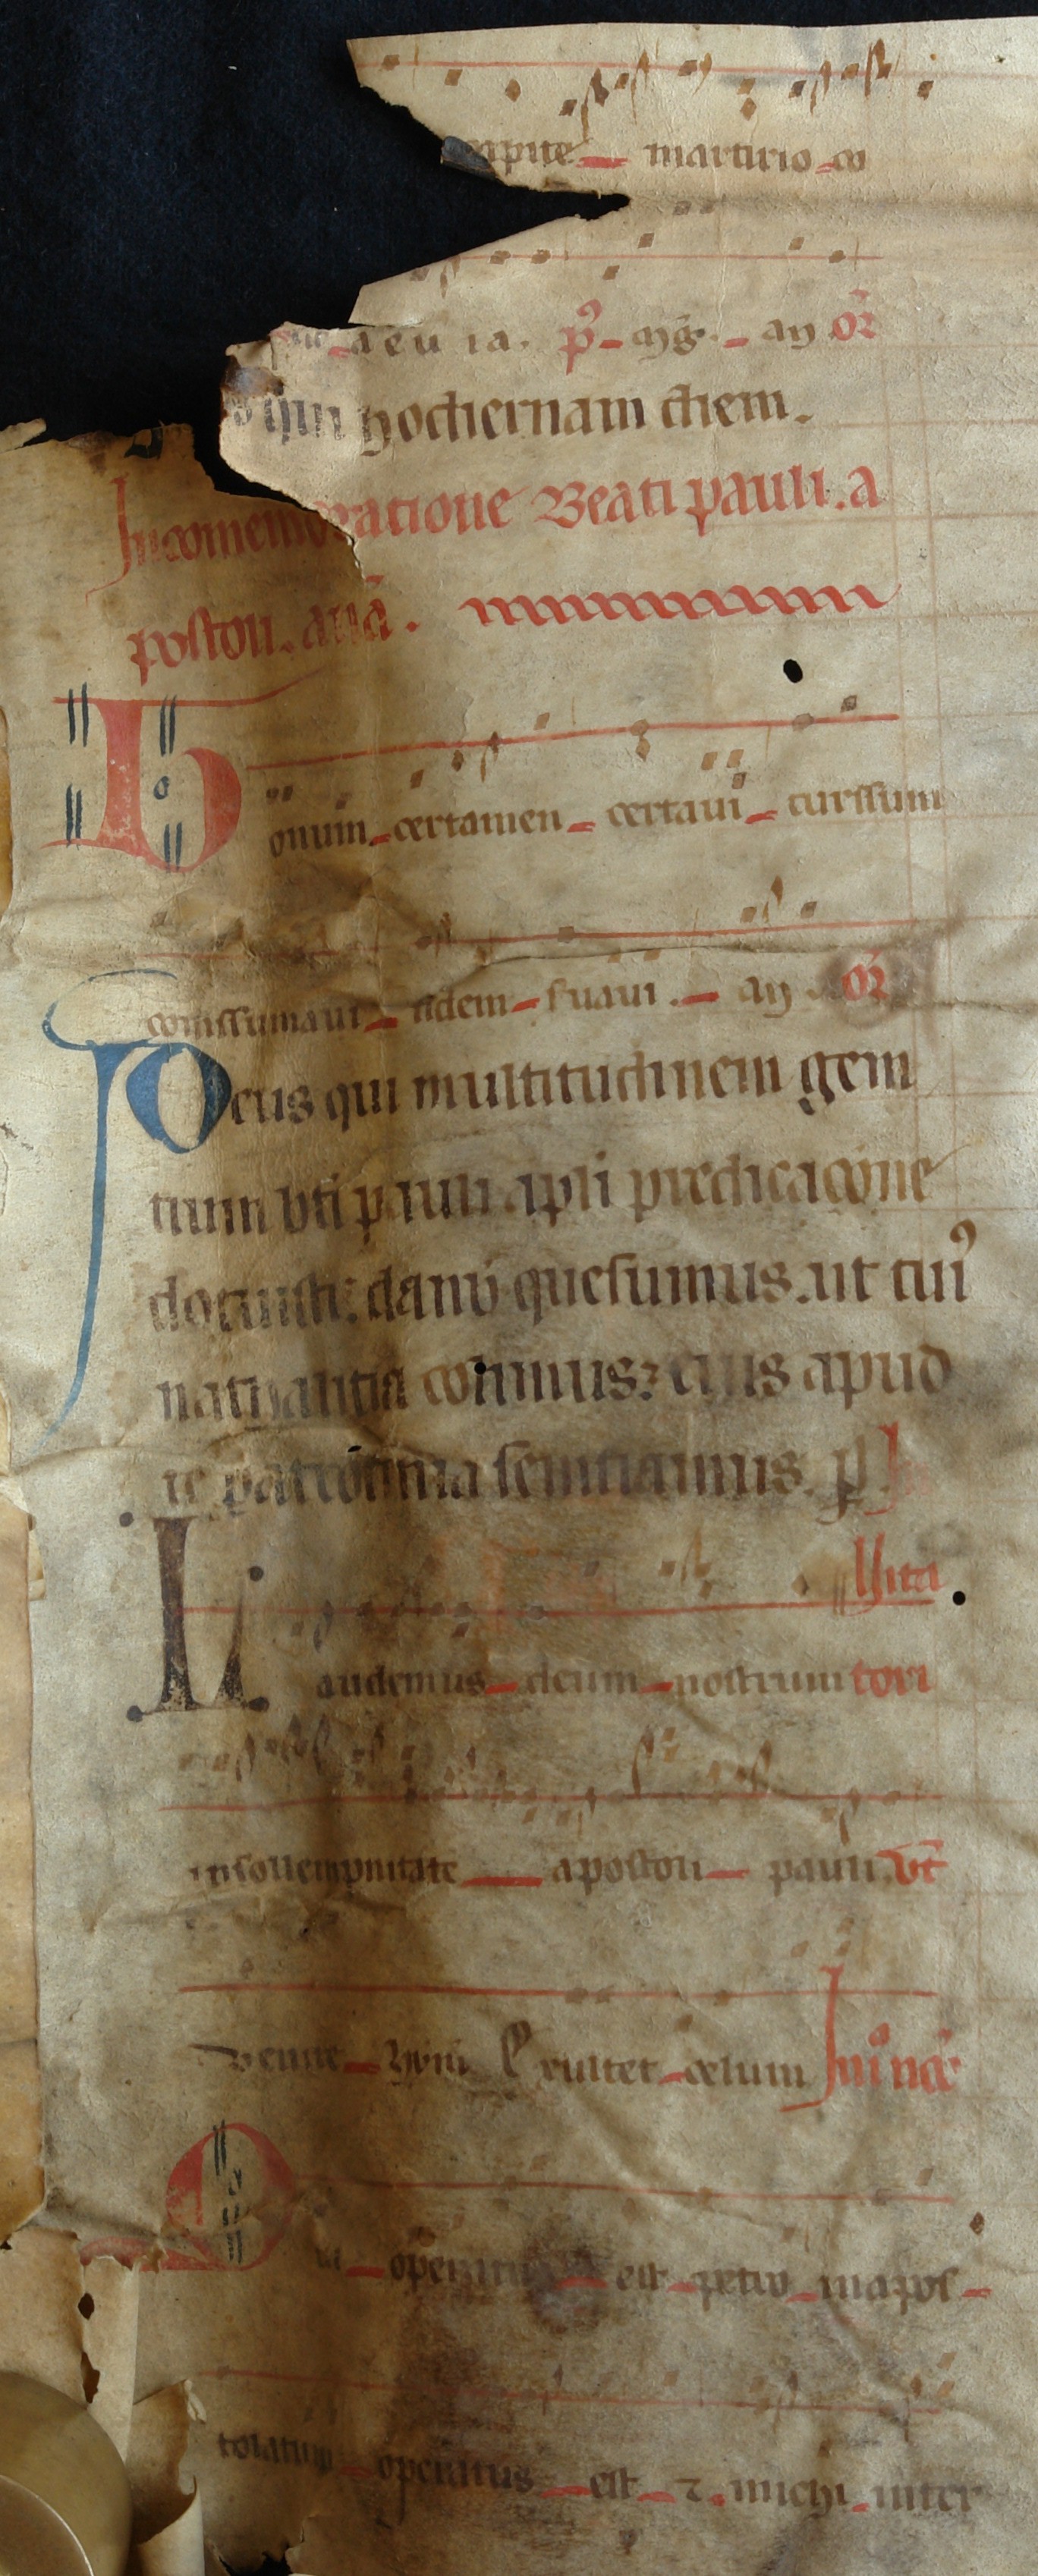 capite martirio co
aeu ia. p̄. mg̃. an or̃
qui hodiernam diem.
In comemoratione Beati pauli. a
postoli. anã.
Bonum certamen certaui curssum
conssumaui fidem seruaui. an or̃
Deus qui multitudinem gen
tium bti pauli apli predicacione
docuisti: da nob quesumus. ut cui9
natalitia colimus: eius apud
te patrocinia sentiamus. p
Inuita
Laudemus deum nostrum tori
in sollempnitate apostoli pauli. ut
Venite ym Exultet celum In nõ
Qui operatus est petro in apos
tolatum operatus est ⁊ michi inter